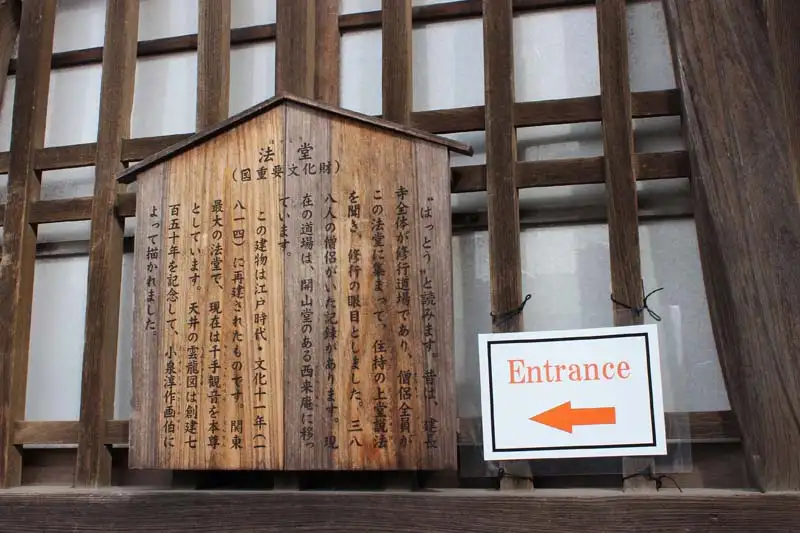 法堂
(国重要文化財)
“はっとう”と読みます。昔は、建長
寺全体が修行道場であり、僧侶全員が
この法堂に集まって、住持の上堂説法
を聞き、修行の眼目としました。三八
八人の僧侶がいた記録があります。現
在の道場は、開山堂のある西来庵に移っ
ています。
この建物は江戸時代・文化十一年(一
八一四)に再建されたものです。関東
最大の法堂で、現在は千手観音を本尊
としています。天井の雲龍図は創建七
百五十年を記念して、小泉淳作画伯に
よって描かれました。
Entrance